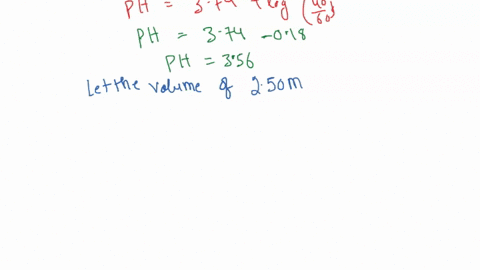 PH = 3.74 + log (40/60)
PH = 3.74 - 0.18
PH = 3.56
Let the volume of 2.50m